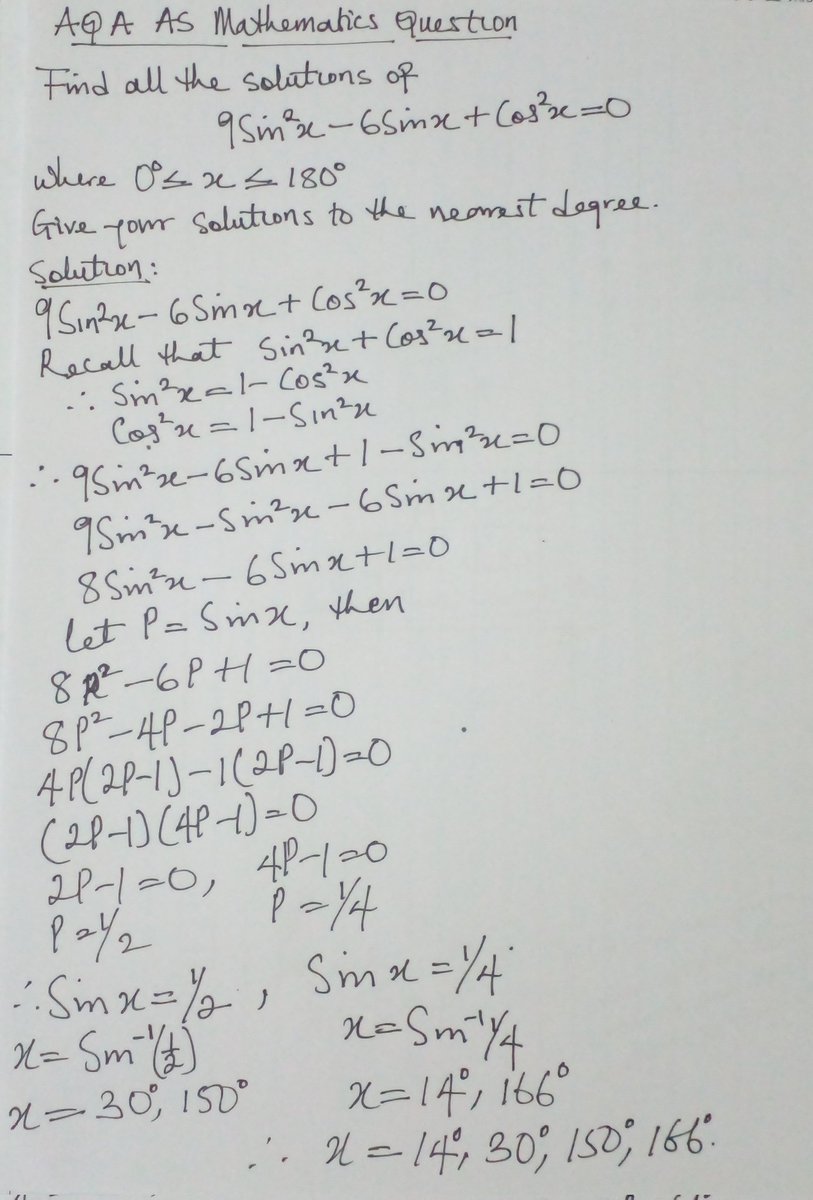 AQA AS Mathematics Question
Find all the solutions of
9Sin²x-6Sinx+Cos²x=0
where 0°≤ x ≤ 180°
Give your solutions to the nearest degree.
Solution:
9Sin²x-6Sinx+Cos²x=0
Recall that Sin²x+Cos²x=1
∴ Sin²x=1-Cos²x
Cos²x=1-Sin²x
∴ 9Sin²x-6Sinx+1-Sin²x=0
9Sin²x-Sin²x-6Sinx+1=0
8Sin²x-6Sinx+1=0
let P=Sinx, then
8P²-6P+1=0
8P²-4P-2P+1=0
4P(2P-1)-1(2P-1)=0
(2P-1)(4P-1)=0
2P-1=0, 4P-1=0
P=1/2 P=1/4
∴ Sinx=1/2, Sinx=1/4
x=Sin⁻¹(1/2) x=Sin⁻¹1/4
x=30°, 150° x=14°, 166°
∴ x=14°, 30°, 150°, 166°.